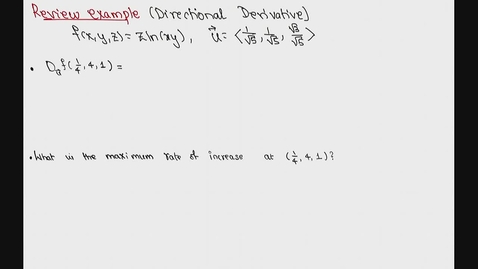 Review example (Directional Derivative)
f(x,y,z) = z ln(xy) , u⃗ = ⟨1/√5, 1/√5, √3/√5⟩
• D_u⃗ f(1/4, 4, 1) =
• What is the maximum rate of increase at (1/4, 4, 1)?